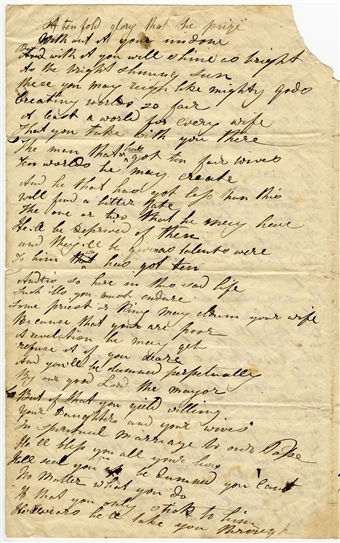 A ten fold glory that the prize
Without it your undone
And with it you will shine as bright
As the bright shining Sun
there you may reign like mighty gods
Creating worlds so fair
A least a world for every wife
That you take with you there
The man that has got ten fair wives
Ten worlds he may create
And he that has got less than this
Will find a bitter fate
The one or two that he may have
He'll be deprived of them
and they'll be given as talents were
To him that has got ten
And tis so here in this sad life
Such ills you must endure
Some priest or King may claim your wife
Because that your are poor
A revelation he may get
refuse it if you dare
And you'll be damned perpetually
By our good Lord the mayor
But if that you yield willing
Your Daughters and your wives
In spiritual marriage to our Pope
He'll bless you all your lives
He'll seal you up be damned you cant
No matter what you do
If that you only stick to him
He swears he'll take you through